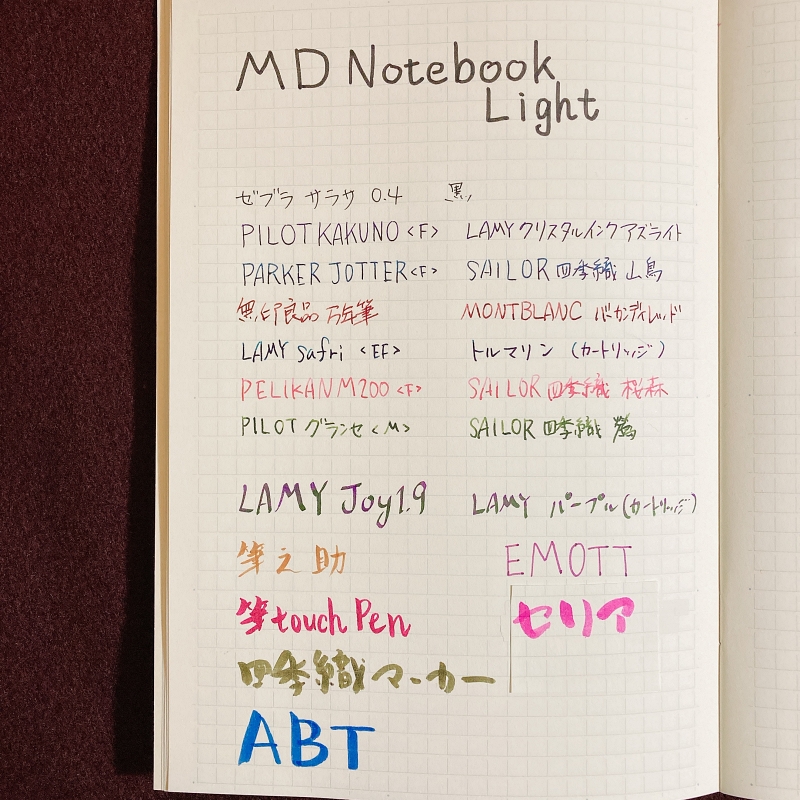 MD Notebook
Light
ゼブラ サラサ 0.4 黒
PILOT KAKUNO <F> LAMY クリスタルインク アズライト
PARKER JOTTER <F> SAILOR 四季織 山鳥
無印良品 万年筆 MONTBLANC バーガンディレッド
LAMY safri <EF> トルマリン (カートリッジ)
PELIKAN M200 <F> SAILOR 四季織 桜森
PILOT グランセ <M> SAILOR 四季織
LAMY Joy 1.9 LAMY パープル (カートリッジ)
筆之助 EMOTT
筆touch Pen セリア
四季織マーカー
ABT